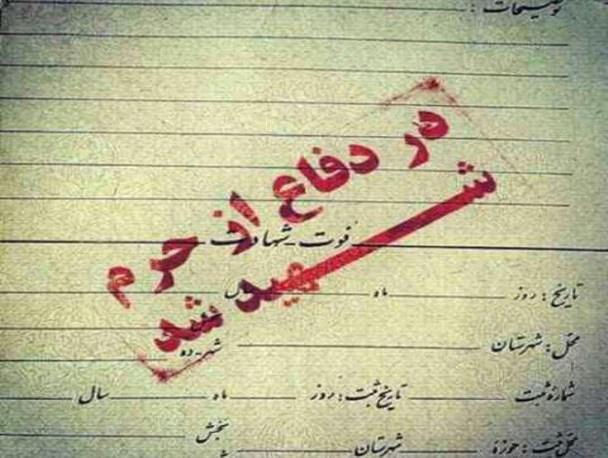 توضیحات :
در دفاع از حرم
شهید شد
فوت - شهادت
تاریخ : روز ماه سال
محل : شهرستان شهر - ده
شماره ثبت تاریخ ثبت : روز ماه سال
محل ثبت : حوزه شهرستان بخش